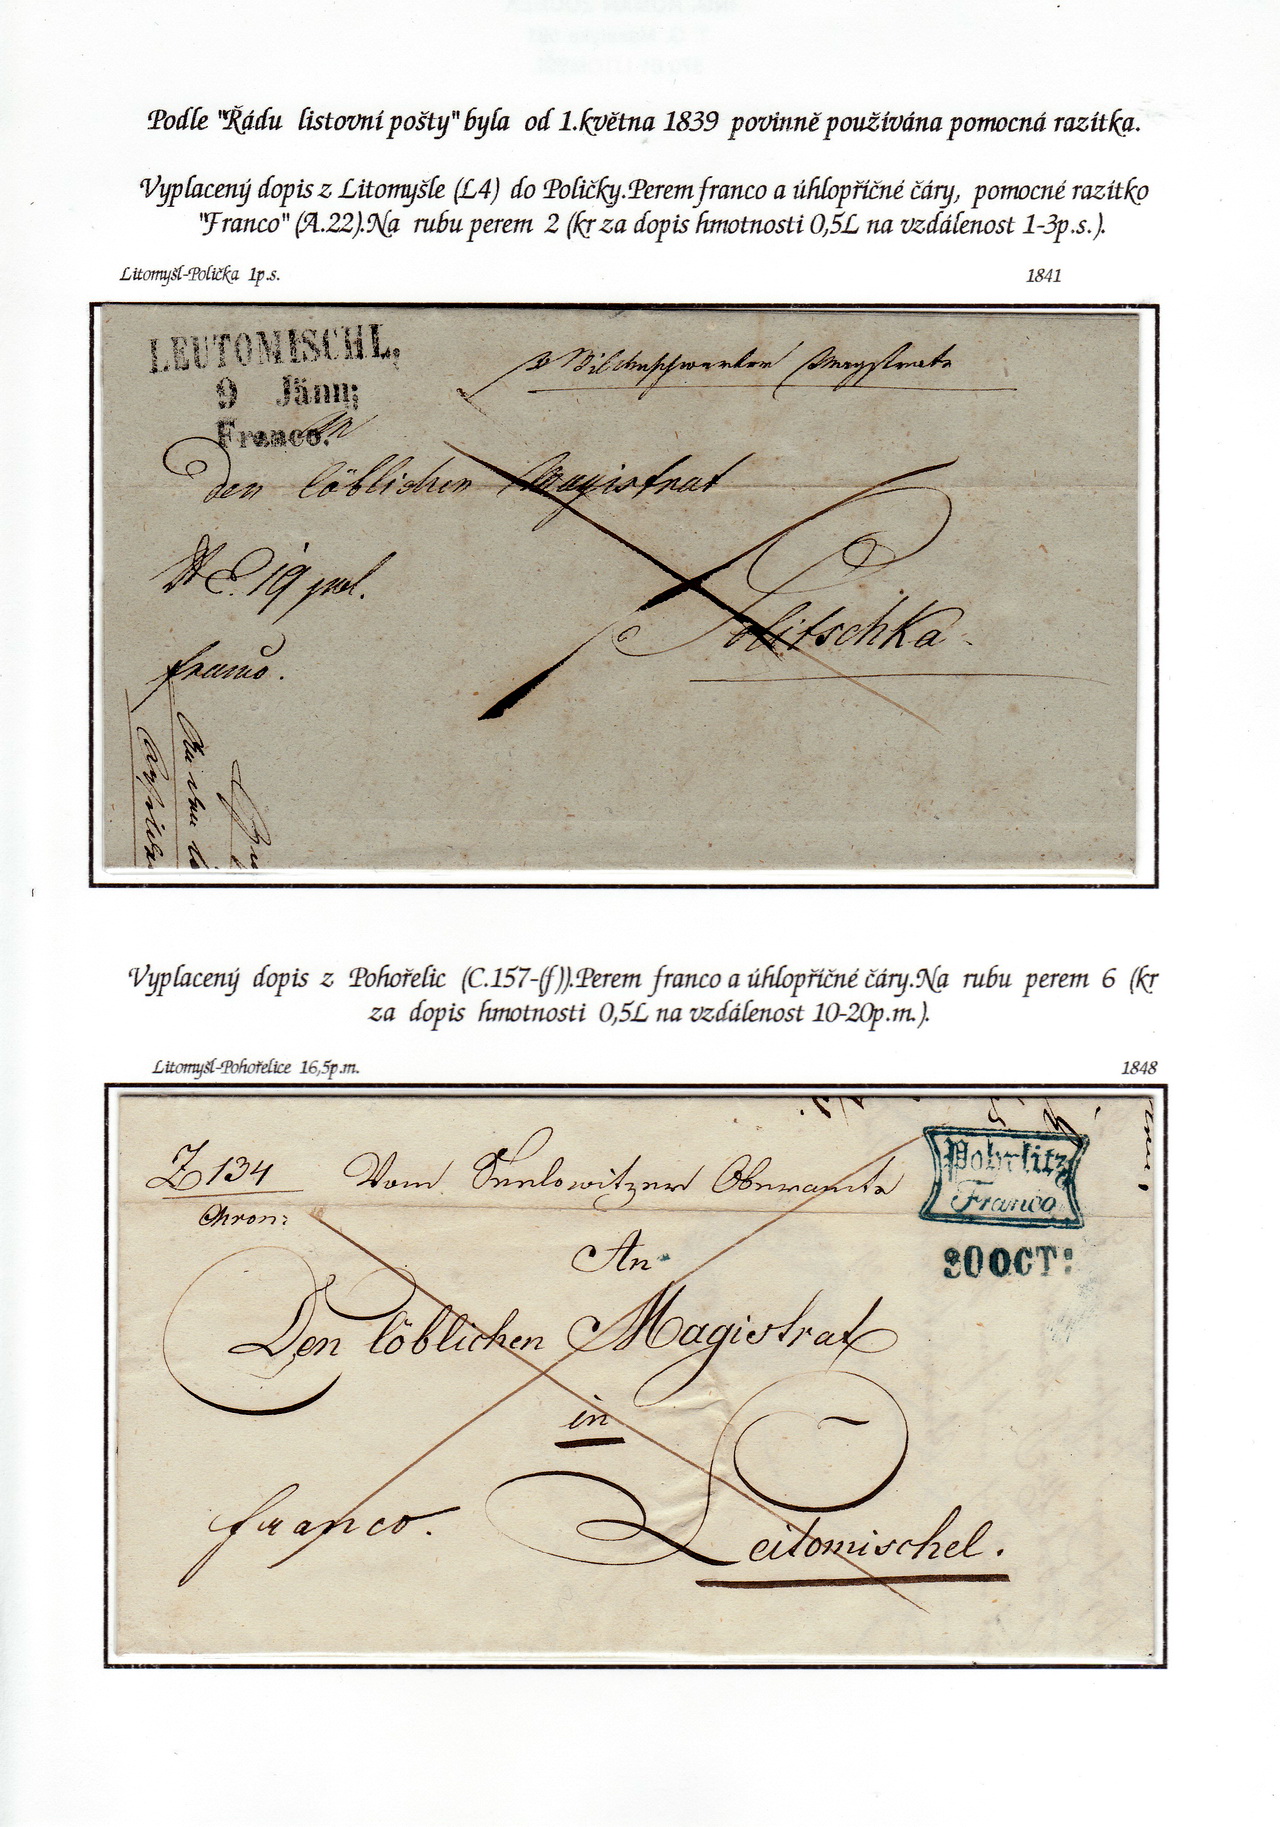 Podle "Řádu listovní pošty" byla od 1.května 1839 povinně používána pomocná razítka.
Vyplacený dopis z Litomyšle (L4) do Poličky.Perem franco a úhlopříčné čáry, pomocné razítko
"Franco" (A.22).Na rubu perem 2 (kr za dopis hmotnosti 0,5L na vzdálenost 1-3p.s.).
Litomyšl-Polička 1p.s.
1841
LEUTOMISCHL,
9 Jänn;
Franco.
Den löblichen Magistrat
Politschka
franco.
Vyplacený dopis z Pohořelic (C.157-(f)).Perem franco a úhlopříčné čáry.Na rubu perem 6 (kr
za dopis hmotnosti 0,5L na vzdálenost 10-20p.m.).
Litomyšl-Pohořelice 16,5p.m.
1848
Z 134
Vom Seelowitzer Oberamte
Pohrlitz
Franco
30 OCT:
An
Den löblichen Magistrat
in
franco.
Leitomischel.